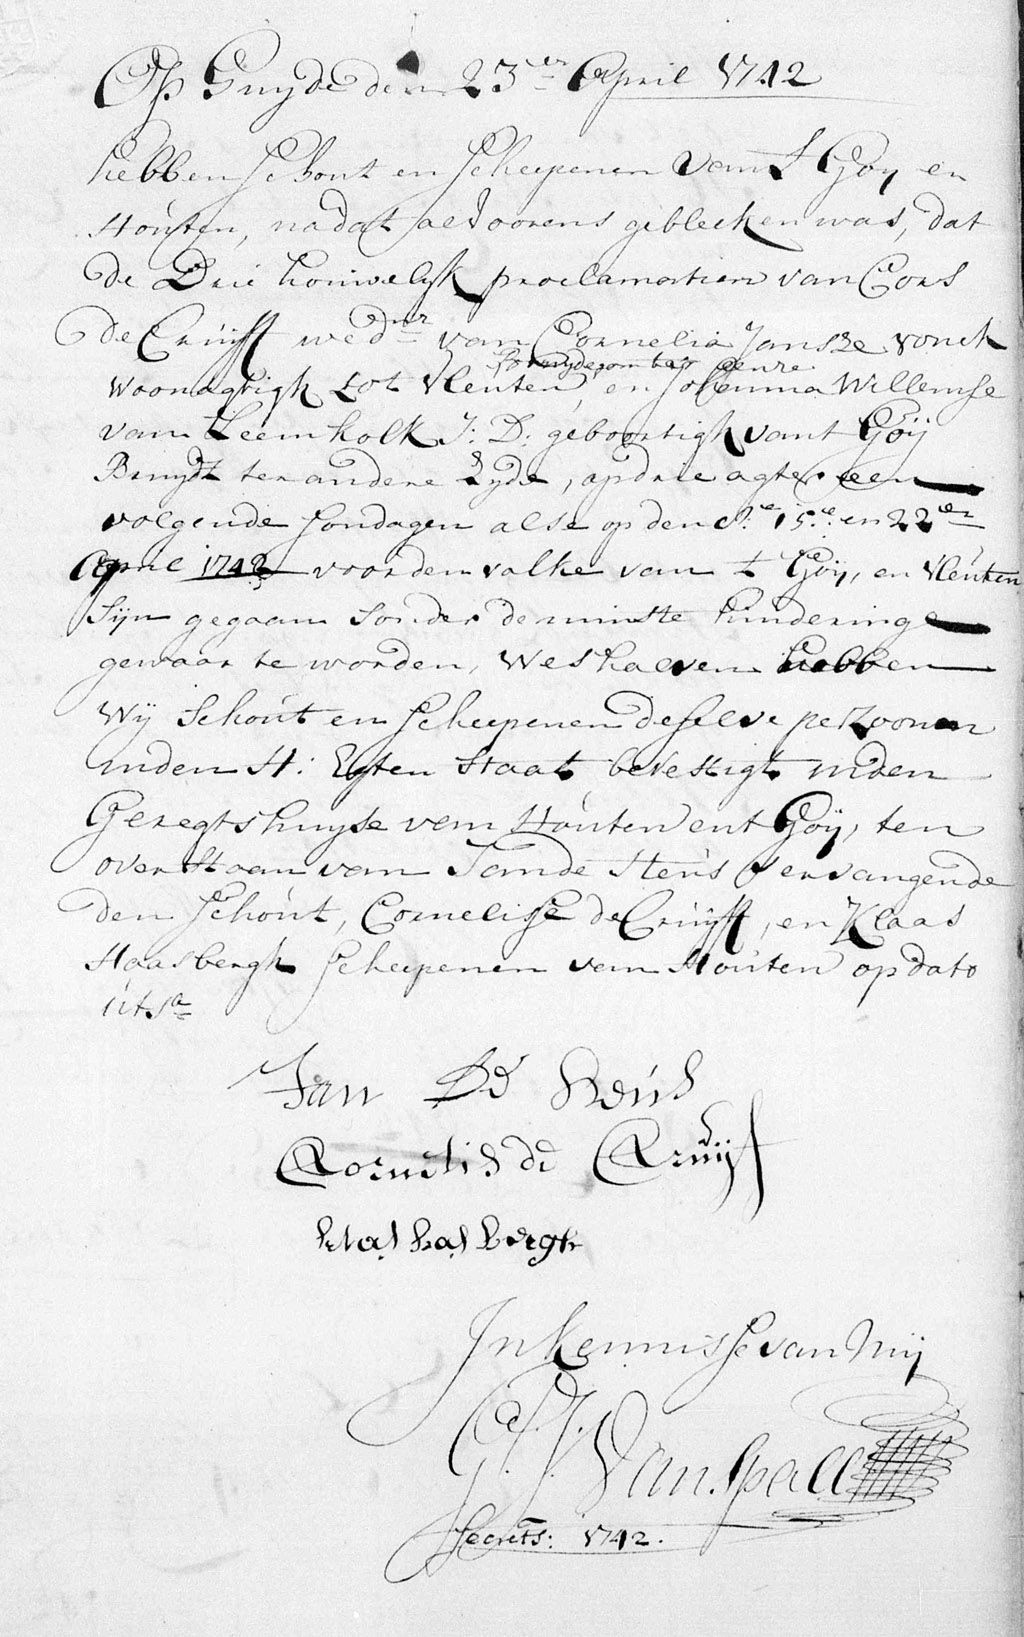 Op Huyde den 23en April 1742
hebben Schout en Scheepenen van t Goy en
Houten, nadat alvoorens gebleeken was, dat
de Drie houwelyk proclamatien van Cors
de Cruyff wednr van Cornelia Jansze vonck
Bruydegom ter eenre
woonagtigh tot vleuten, en Johanna Willemse
van Leemkolk J: D: geboortigh vant Goÿ
Bruydt ter andere Zyde, op drie agter een
volgende sondagen als op den 8e 15e en 22en
April 1742 voor den volke van t Goÿ, en vleuten
Sijn gegaan sonder de minste hinderinge
gewaar te worden, Weshalven hebben
Wij Schout en Scheepenen deselve persoonen
inden H: Egten Staat bevestigt inden
Geregtshuyse van Houten ent Goÿ, ten
overstaan van Jan de Keus vervangende
den Schout, Cornelisse de Cruÿff, en Klaas
Haasbergh Scheepenen van Houten op dato
utsa
Jan De Keus
Cornelis de Cruijf
klas hasbergh
In kennisse van Mij
Van Spall
Secrets: 1742.